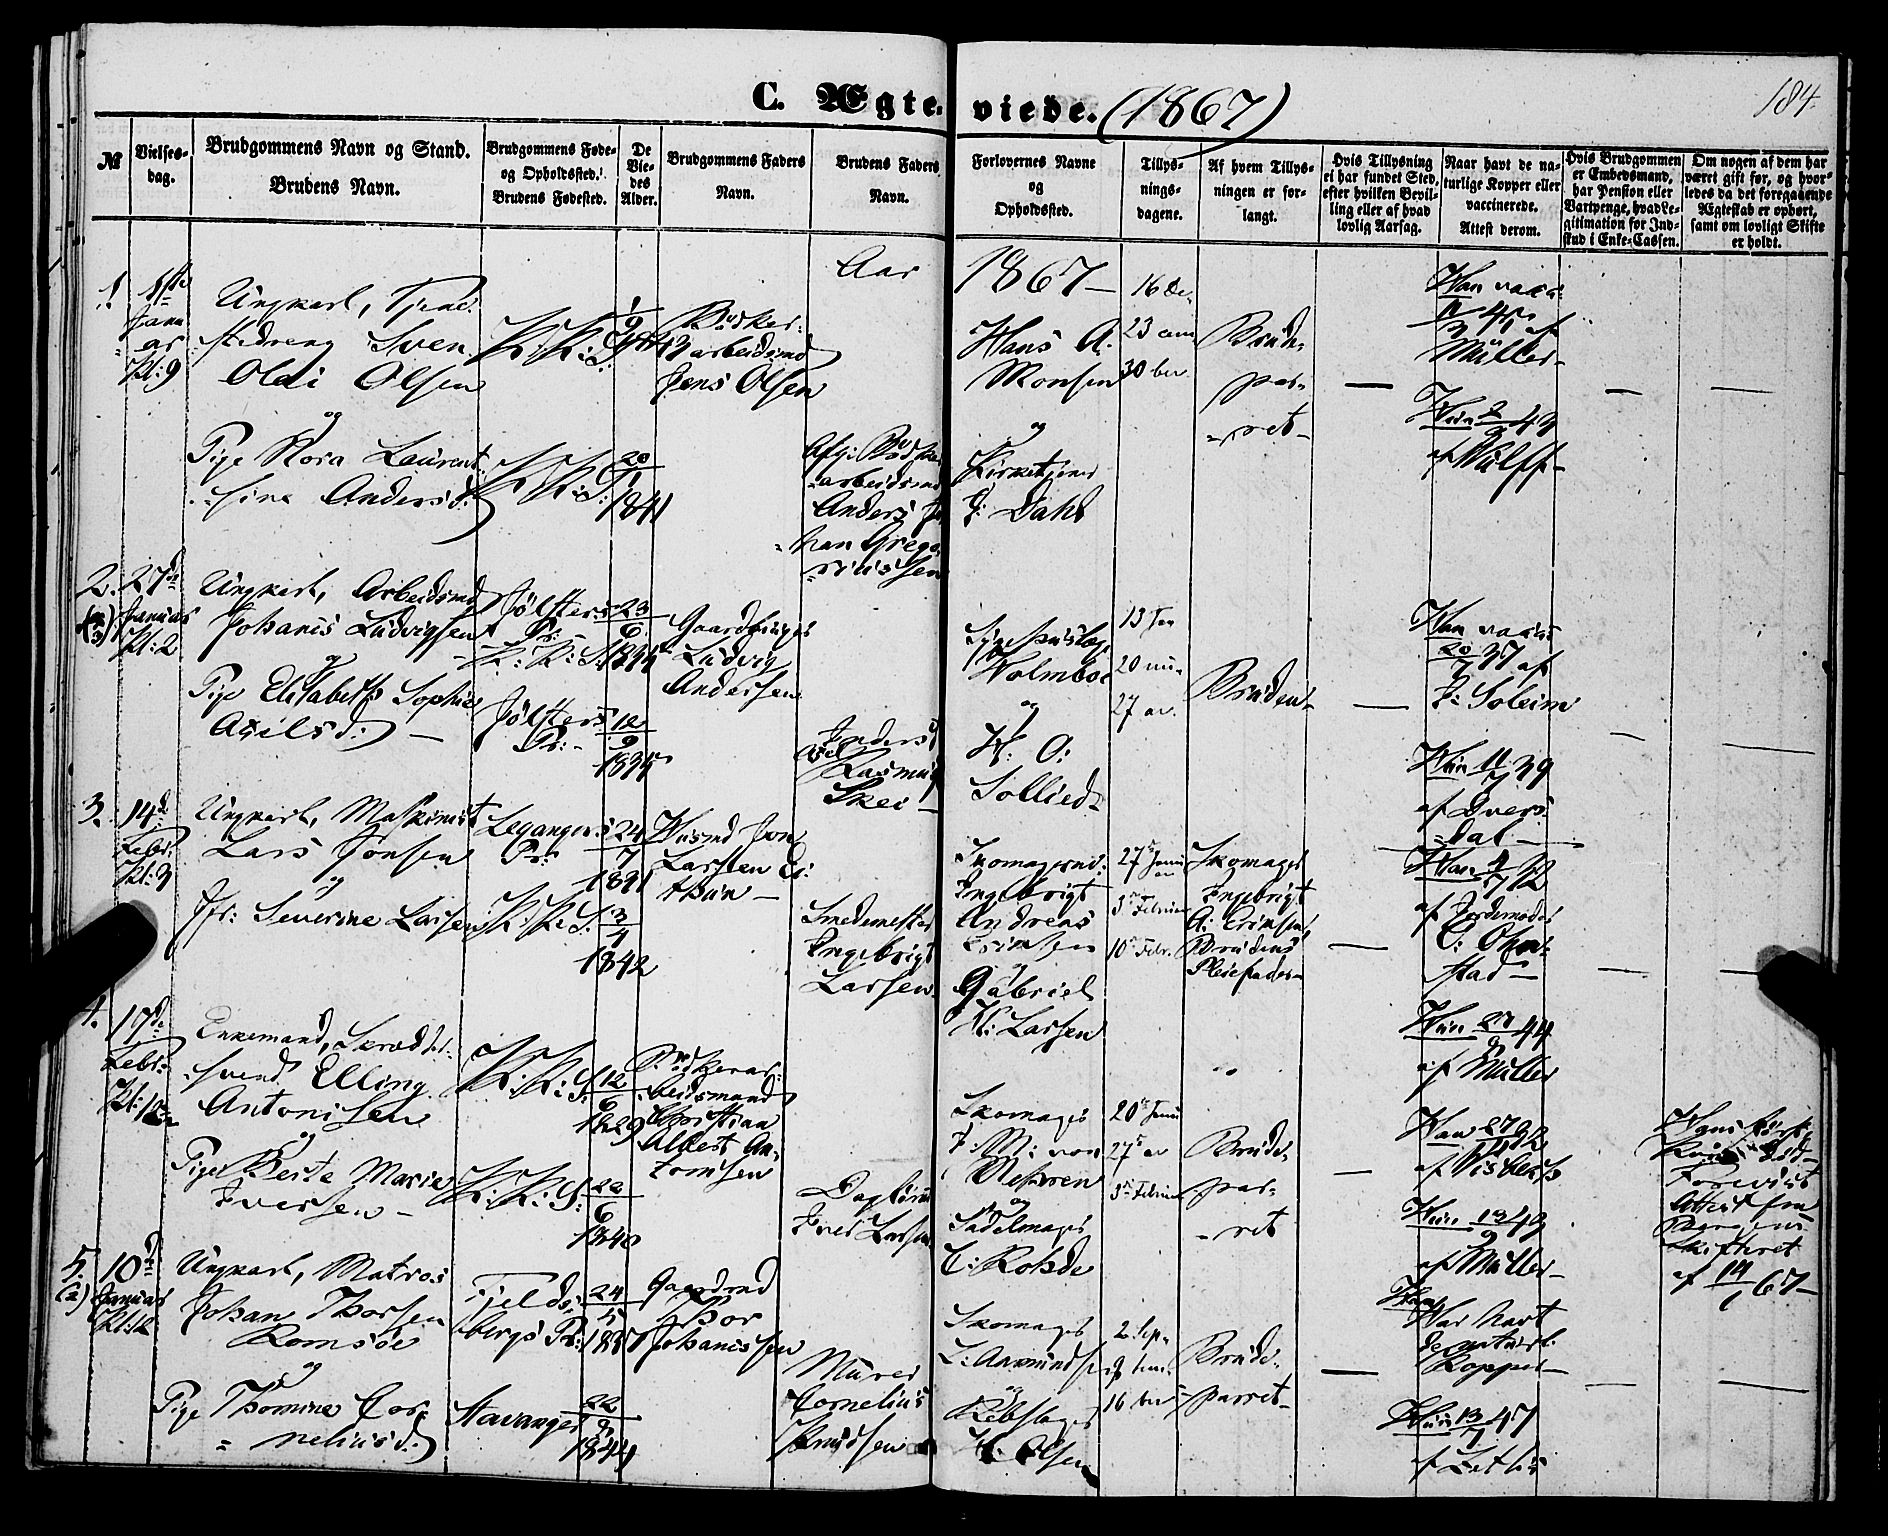 C. Ægte-viede. (1867)
184.
№
Vielses-
dag.
Brudgommens Navn og Stand.
Brudens Navn.
Brudgommens Føde-
og Opholdssted.
Brudens Fødested.
De
Vie-
des
Alder.
Brudgommens Faders
Navn.
Brudens Faders
Navn.
Forlovernes Navne
og
Opholdssted.
Tillys-
nings-
dagene.
Af hvem Tillys-
ningen er for-
langt.
Hvis Tillysning
ei har fundet Sted,
efter hvilken Bevil-
ling eller af hvad
lovlig Aarsag.
Naar havt de na-
turlige Kopper eller
vaccinerede.
Attest derom.
Hvis Brudgommen
er Embedsmand,
har Pension eller
Vartpenge, hvad Le-
gitimation for Ind-
skud i Enke-Cassen.
Om nogen af dem har
været gift før, og hvor-
ledes da det foregaaende
Ægteskab er ophørt,
samt om lovligt Skifte
er holdt.
Aar 1867-
1.
1ste
Janu
ar
Kl: 9
Ungkarl,
Sven
Olai Olsen
og
Pige Nora Laurent
sine Andersd:
K: K: S:
K: K: S:
20
1
1841
Bødker-
arbeidsmd
Jens Olsen
Afg: Bødker
arbeidsmd
Anders Jo
han Grego
riussen
Hans A.
Monsen
og
Kirketjener
J: Dahl
16 De-
23 cem
30 ber.
Brude-
par-
ret-
Han vacc:
11
3 45 af
Müller-
Hun 2
9 43
af Wulff-
2.
27de
Januar
Kl: 2
Ungkarl, Arbeidsmd
Johanes Ludvigsen
og
Pige Elisabeth Sophie
Axelsd: -
Jølsters
Pr:
K: K: S:
Jølsters
Pr:-
23
6
1835
12
9
1835
Gaardbruger
Ludvig
Andersen
Rasmus
Skei-
Holmboe
og
H: O:
Sollied-
13 Jan
20 nu-
27 ar.
Bruden-
Han vacc:
20
7 37 af
J: Soleim
Hun 11
7 39
af Dvers-
dal-
3.
14de
Febr:
Kl: 3
Ungkarl, Maskinist
Lars Jonsen
og
Jfr: Severine Larsen
Leganger
Pr:
K: K: S:
24
7
1841
3
4
1842
Husmd Jon
Larsen
Smedemester
Engebrigt
Larsen
Skomagermd:
Ingebrigt
Andreas
Erinsen
og
Gabriel
H: Larsen
27de Janu
3de Februar
10de Febr.
Skomager
Ingebrigt
A: Erinsen
Brudens
Pleiefader-
Han
af Jordemoder
C: Ohm-
stad-
Hun 27
9 44
af Müller
4.
17de
Febr:
Enkemand, Skrædder-
svend Elling
Antonisen
og
Pige Berte Marie
Iversen-
K: K: S:
K: K: S:
12
6
1829
22
6
1840
Bødkerar-
beidsmand
Christian
Albert An-
tonisen
Iver Larsen
Skomager
J: M: von
og
Sadelmager
C: Rohde
20de Janu
27de ar
3de Februar
Brude-
par-
ret
Han 27
af Visbech
Hun 13
9 43
af Müller-
Forevist
Attest fra
Bergens
Skifteret
af 14
1 67-
5.
(2)
10de
Januar
Kl: 12
Ungkarl, Matros
Johan Thorsen
Romsøe
og
Pige Thomine Cor-
neliusd:
Fjelds-
bergs Pr:
Stavanger
24
5
22
9
1844
Gaardmd
Thor
Johanessen
Murer
Cornelius
Knudsen
Skomager
L: Aamundsen
og
Rebslager
H: Olsen
2 Sep-
9 tem-
16 ber
Brude-
parret-
Han
Har havt
de naturl:
Kopper-
Hun 13
7 47